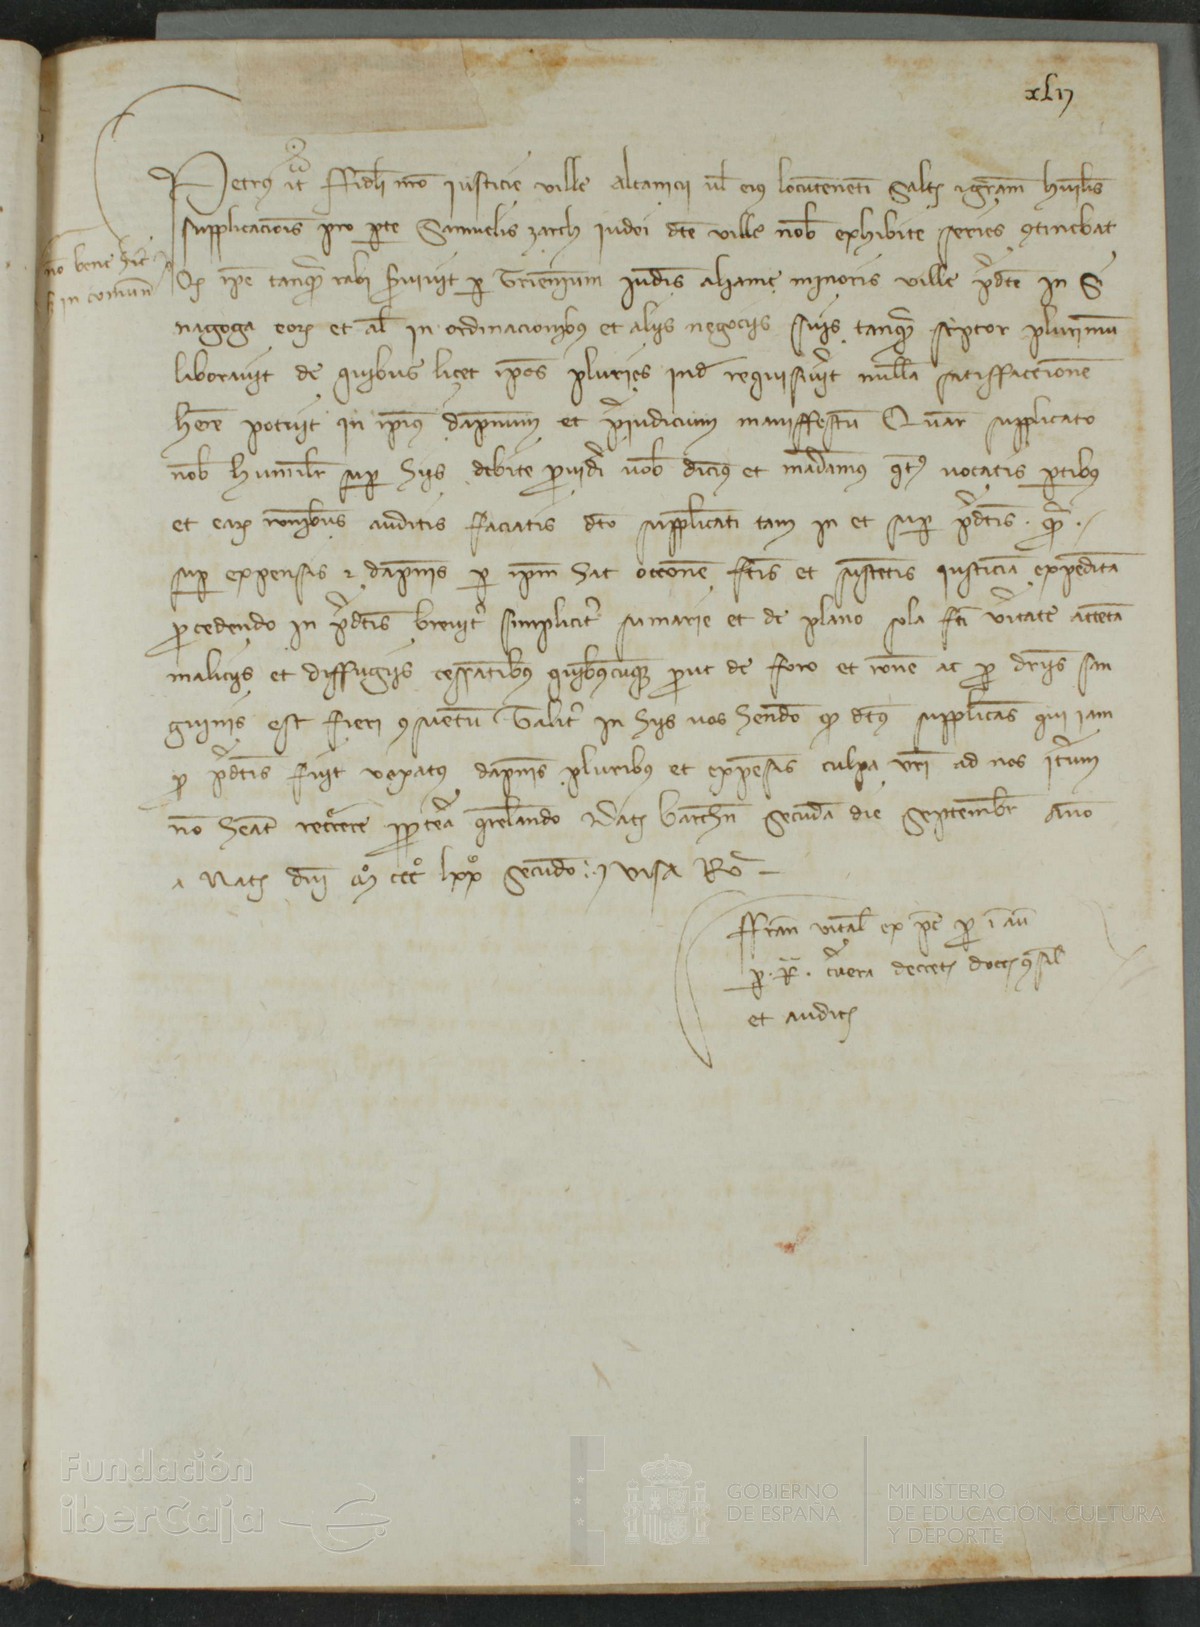 xlij
Petrus etc fideli nro Justicie ville Alcanicii vl eius locumtenenti Saltm et gram humilis
supplicacionis pro parte Samuelis zarch iudei dce ville nob exhibite series continebat
no bene hic
in comun
Qd ipe tanqm rabi servivit per trienium iudeis aliame minoris ville predce in Si
nagoga eorum et al in ordinacionibus et aliis negociis suis tanqm scriptor plurimum
laboravit de quibus licet ipos pluries inde requisiverit nullam satisfaccionem
here potuit in ipius dapnum et preiudicium maniffestum Quare supplicato
nob humilr super hiis debite provideri vob dicimus et mandamus qtus vocatis partibus
et earum ronibus auditis faciatis dco supplicanti tam in et super predcis . qm .
super expensis et dapnis per ipm hac occone fcis et sustentis iusticiam expeditam
procedendo in predcis breviter simpliciter sumarie et de plano sola fci veritate attenta
maliciis et diffugiis cessantibus quibuscunque prout de foro et rone ac
guinis est fieri consuetum Taliter in hiis vos hendo qd dcus supplicans qui iam
pro predcis fuit vexatus dapnis pluribus et expensis culpa vri ad nos iterum
no heat recurrere propterea querelando Dat Barchn secunda die Septembr Anno
a Nat dni Mº cccº lxxº secundo visa Rº
ffran vital ex pte per
per . R . cervera decret doct consil
et audit
Fundación
iberCaja
GOBIERNO
DE ESPAÑA
MINISTERIO
DE EDUCACIÓN, CULTURA
Y DEPORTE